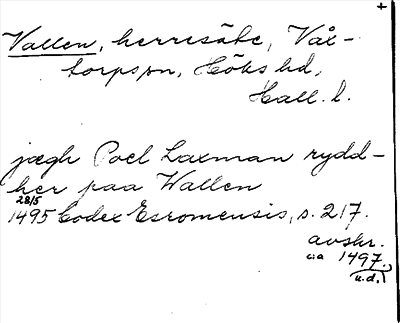 +
Vallen, herresäte, Vål-
torps sn, Höks hd,
Hall. l.
jægh Poel Laxman rydd-
her paa Wallen
28/5
1495 Codex Esromensis, s. 217.
avskr.
ca 1497.
u.d.